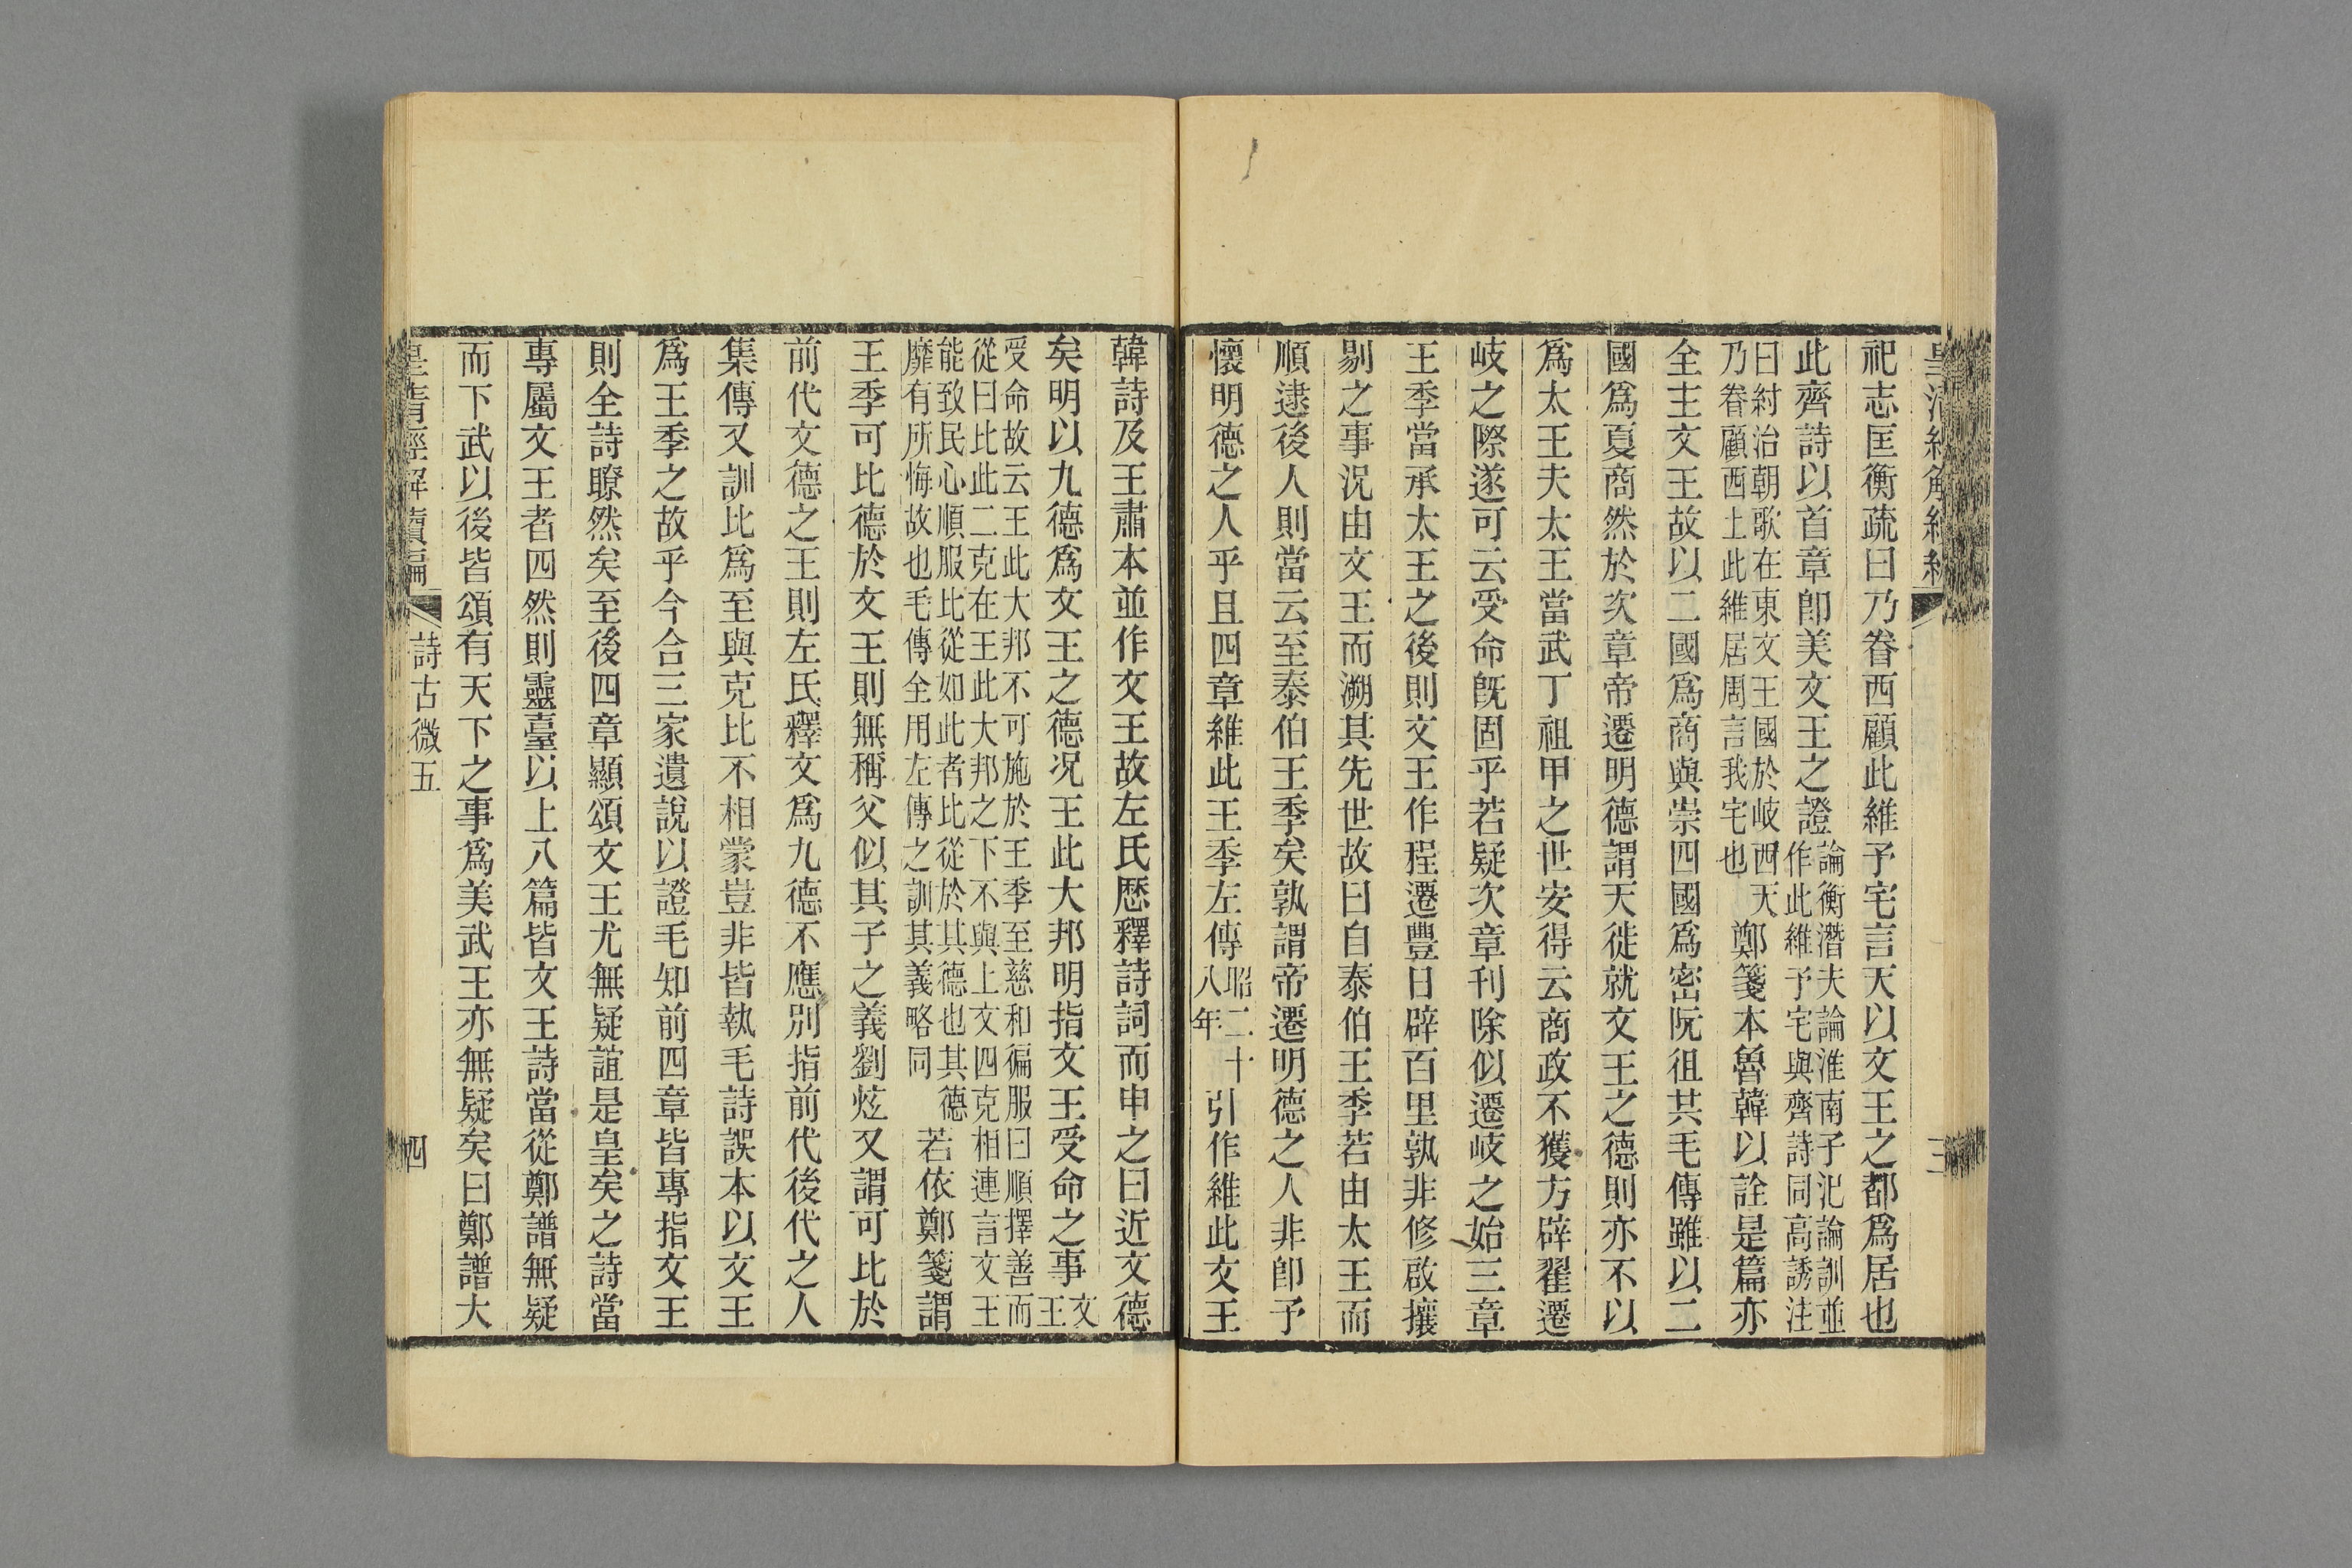 祀志匡衡疏曰乃眷西顧此維予宅言天以文王之都爲居也
此齊詩以首章卽美文王之證論衡潛夫論淮南子氾論訓並作此維予宅與齊詩同高誘注
曰紂治朝歌在東文王國於岐西天乃眷顧西土此維居周言我宅也鄭箋本魯韓以詮是篇亦
全主文王故以二國爲商與崇四國爲密阮徂共毛傳雖以二
國爲夏商然於次章帝遷明德謂天徙就文王之德則亦不以
爲太王夫太王當武丁祖甲之世安得云商政不獲方辟翟遷
岐之際遂可云受命旣固乎若疑次章刊除似遷岐之始三章
王季當承太王之後則文王作程遷豐日辟百里孰非修啟攘
剔之事況由文王而溯其先世故曰自泰伯王季若由太王而
順逮後人則當云至泰伯王季矣孰謂帝遷明德之人非卽予
懷明德之人乎且四章維此王季左傳昭二十八年引作維此文王
韓詩及王肅本並作文王故左氏歷釋詩詞而申之曰近文德
矣明以九德爲文王之德况王此大邦明指文王受命之事文王
受命故云王此大邦不可施於王季至慈和徧服曰順擇善而從曰比此二克在王此大邦之下不與上文四克相連言文王
能致民心順服比從如此者比從於其德也其德靡有所悔故也毛傳全用左傳之訓其義略同若依鄭箋謂
王季可比德於文王則無稱父似其子之義劉炫又謂可比於
前代文德之王則左氏釋文爲九德不應別指前代後代之人
集傳又訓比爲至與克比不相蒙豈非皆執毛詩誤本以文王
爲王季之故乎今合三家遺說以證毛知前四章皆專指文王
則全詩瞭然矣至後四章顯頌文王尤無疑誼是皇矣之詩當
專屬文王者四然則靈臺以上八篇皆文王詩當從鄭譜無疑
而下武以後皆頌有天下之事爲美武王亦無疑矣曰鄭譜大
皇清經解續編
詩古微五
四